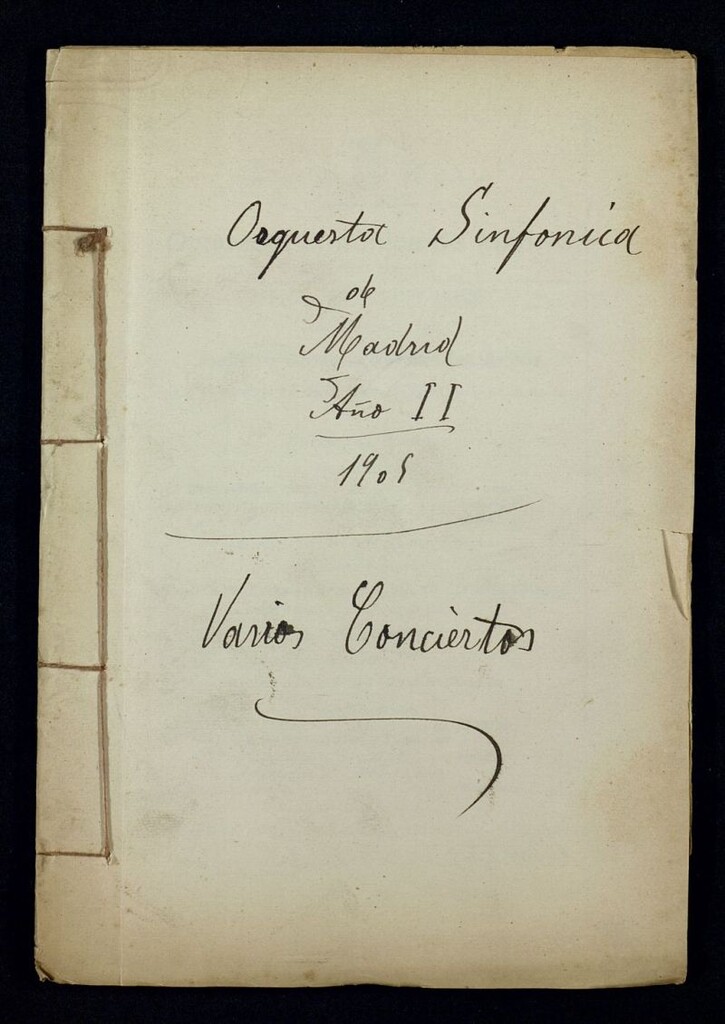 Orquesta Sinfonica
de
Madrid
Año II
1905
Varios Conciertos